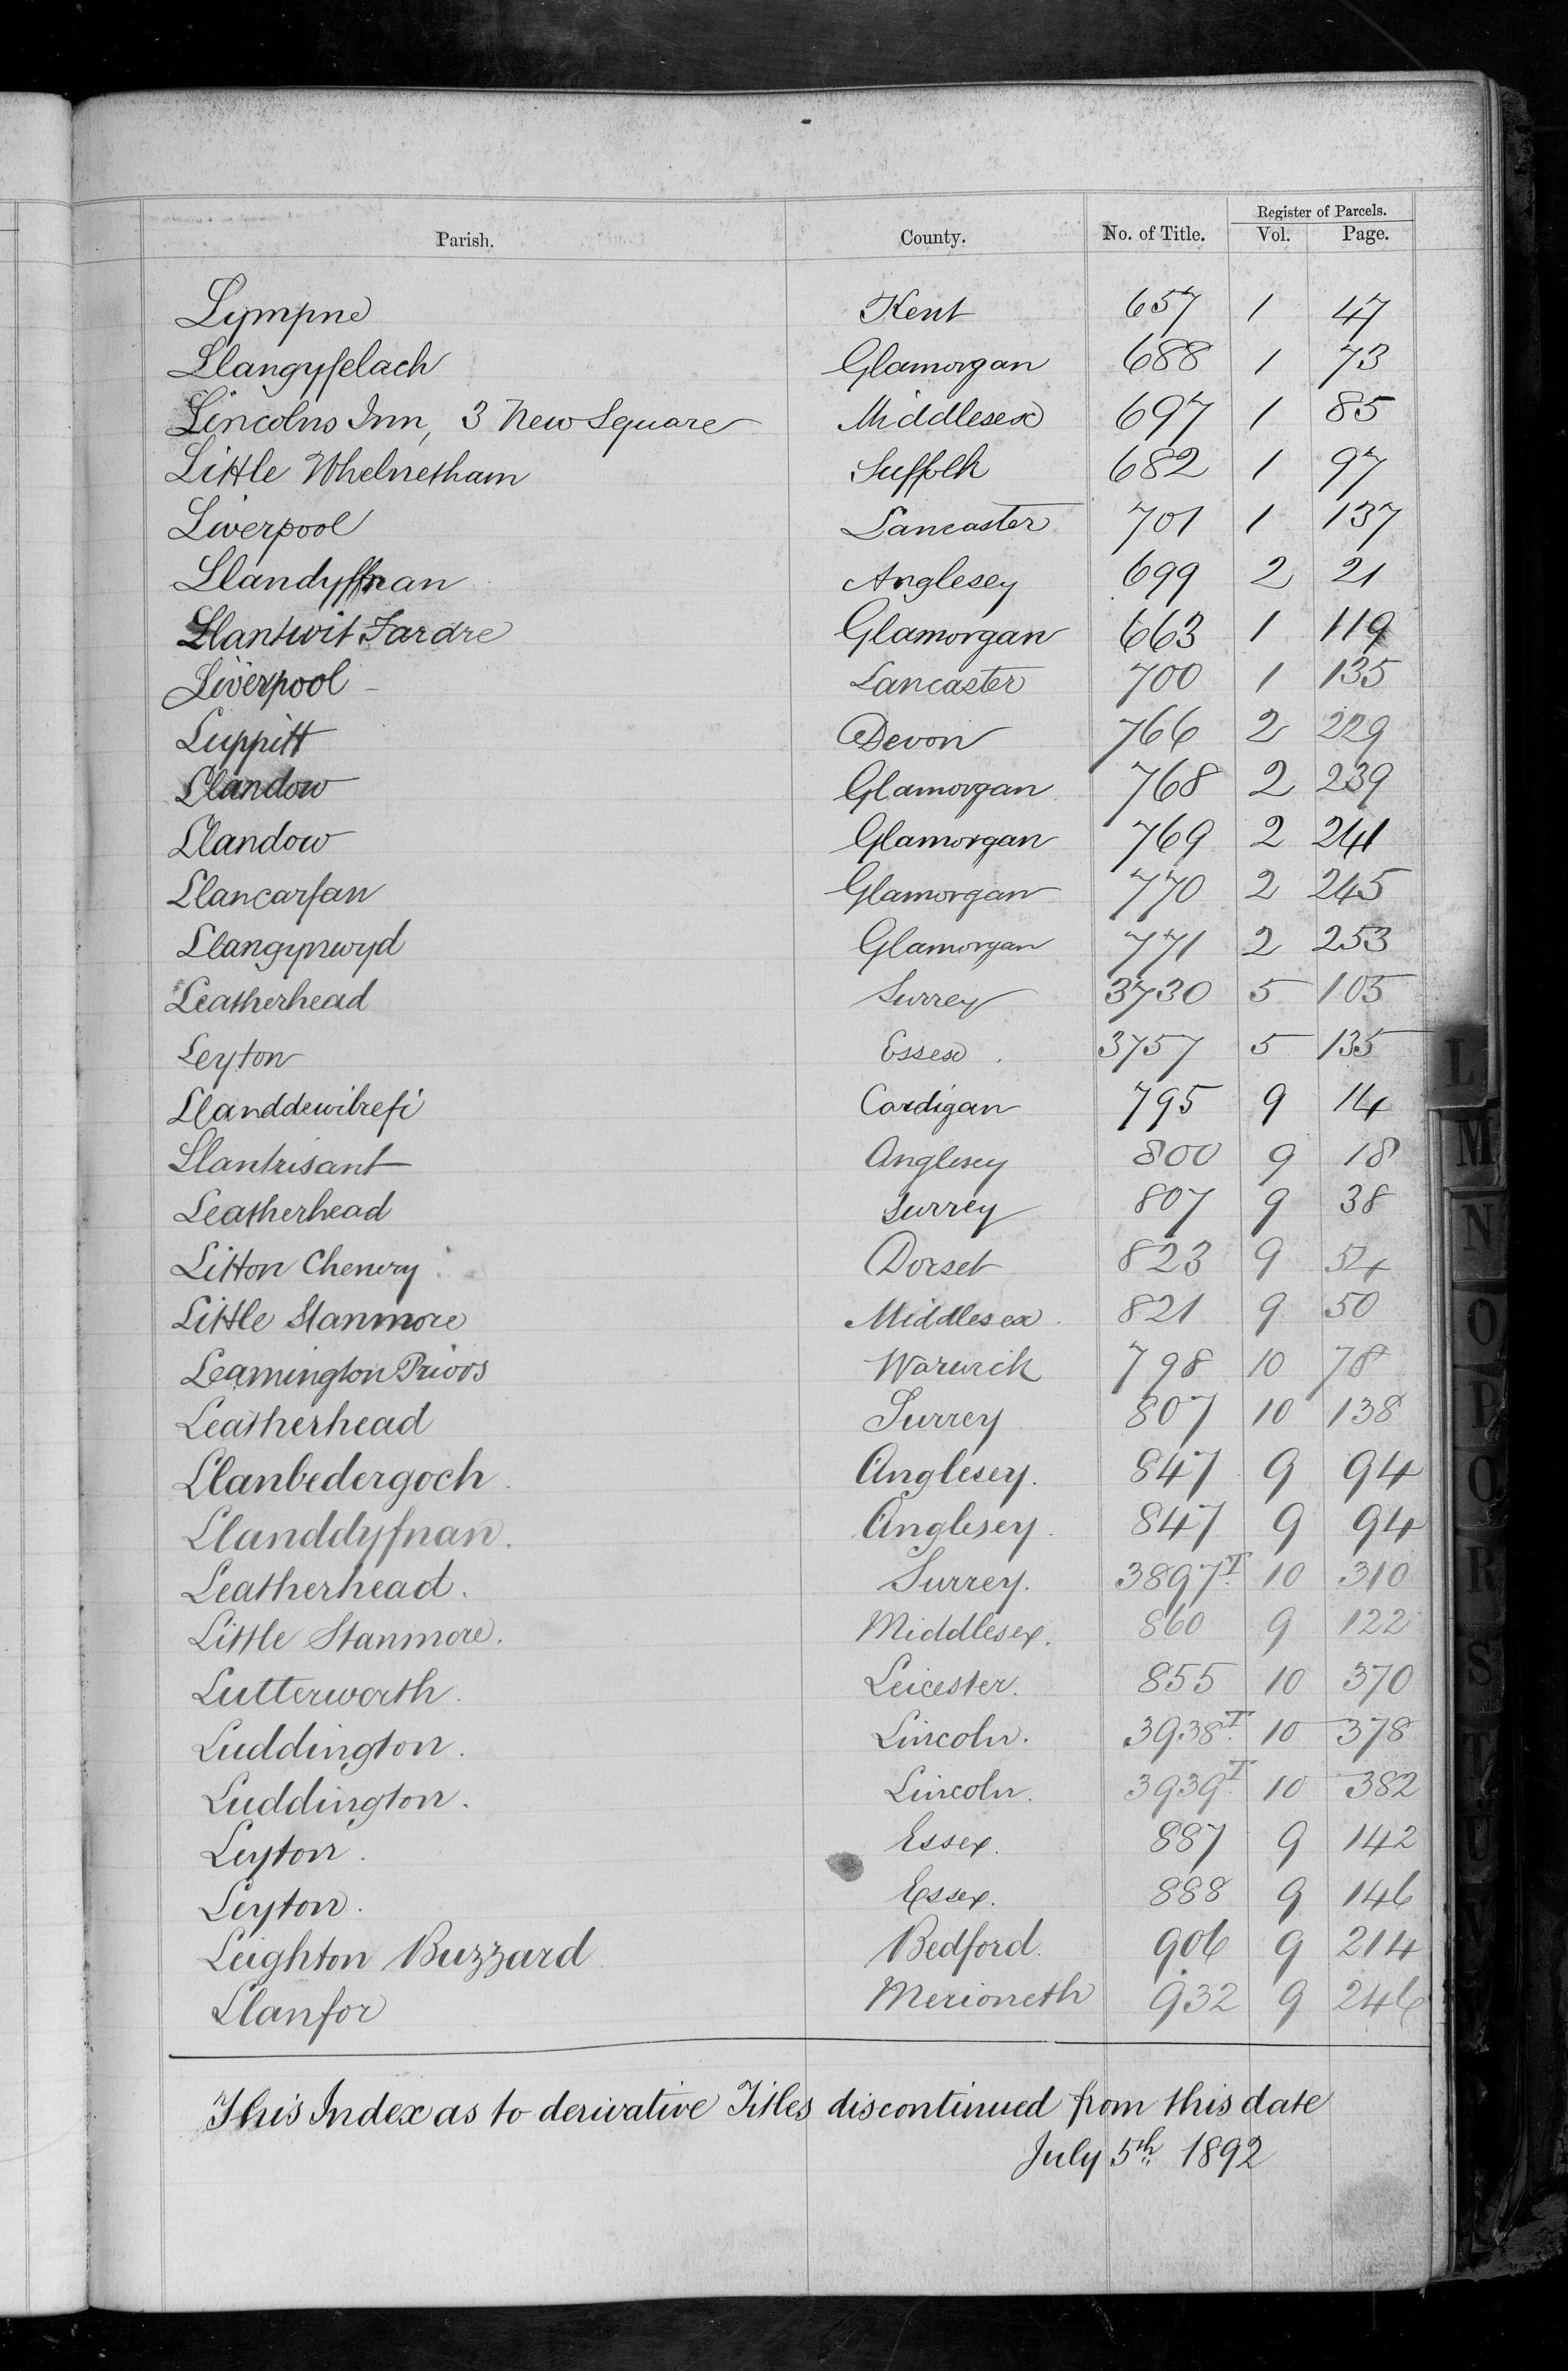 Register of Parcels.
Parish. County. No. of Title. Vol. Page.
Lympne Kent 657 1 47
Llangyfelach Glamorgan 688 1 73
Lincolns Inn, 3 New Square Middlesex 697 1 85
Little Whelnetham Suffolk 682 1 97
Liverpool Lancaster 701 1 137
Llandyffnan Anglesey 699 2 21
Llantwit Fardre Glamorgan 663 1 119
Liverpool Lancaster 700 1 135
Luppitt Devon 766 2 229
Llandow Glamorgan 768 2 239
Llandow Glamorgan 769 2 241
Llancarfan Glamorgan 770 2 245
Llangynwyd Glamorgan 771 2 253
Leatherhead Surrey 3730 5 105
Leyton Essex 3757 5 135
Llanddewibrefi Cardigan 795 9 14
Llantrisant Anglesey 800 9 18
Leatherhead Surrey 807 9 38
Litton Chenery Dorset 823 9 54
Little Stanmore Middlesex 821 9 50
Leamington Priors Warwick 798 10 78
Leatherhead Surrey 807 10 138
Llanbedergoch Anglesey. 847 9 94
Llanddyfnan. Anglesey. 847 9 94
Leatherhead. Surrey. 3897T. 10 310
Little Stanmore. Middlesex. 860 9 122
Lutterworth. Leicester. 855 10 370
Luddington. Lincoln. 3938T. 10 378
Luddington. Lincoln. 3939T. 10 382
Leyton. Essex. 887 9 142
Leyton. Essex. 888 9 146
Leighton Buzzard Bedford. 906 9 214
Llanfor Merioneth 932 9 246
This Index as to derivative Titles discontinued from this date
July 5th 1892
L
M
N
O
P
Q
R
S
T
U